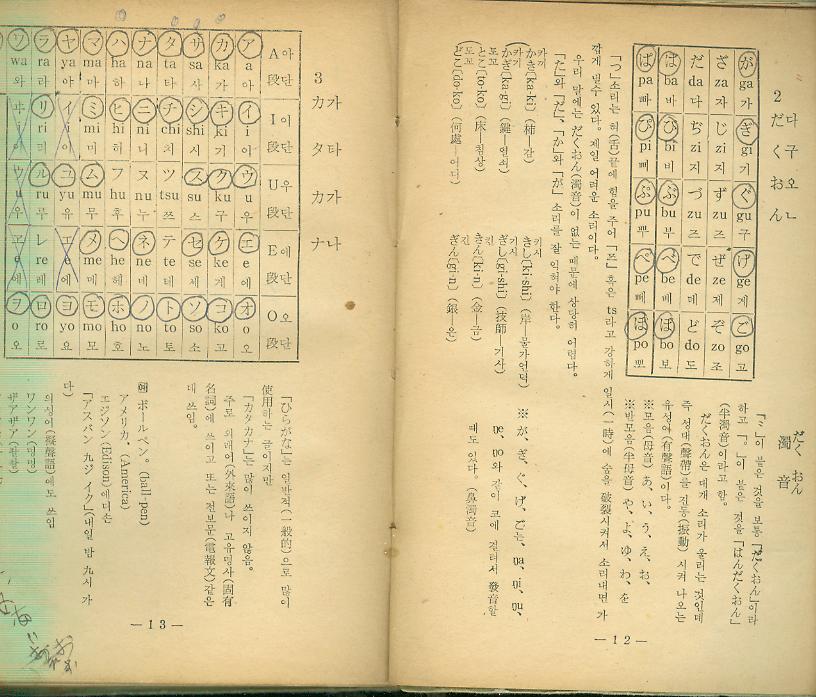 2 다구오ㄴ
だくおん
が ga 가 ぎ gi 기 ぐ gu 구 げ ge 게 ご go 고
ざ za 자 じ zi 지 ず zu 즈 ぜ ze 제 ぞ zo 조
だ da 다 ぢ zi 지 づ zu 즈 で de 데 ど do 도
ば ba 바 び bi 비 ぶ bu 부 べ be 베 ぼ bo 보
ぱ pa 빠 ぴ pi 삐 ぷ pu 뿌 ぺ pe 뻬 ぽ po 뽀
だく おん
濁 音
「〃」이 붙은 것을 보통 「だくおん」이라
하고 「。」이 붙은 것을 「はんだくおん」
(半濁音)이라고 함.
だくおん은 대개 소리가 울리는 것인데
즉 성대(聲帶)를 진동(振動) 시켜 나오는
유성어(有聲語)이다.
※모음(母音) あ、い、う、え、お、
※반모음(半母音) や、よ、ゆ、わ、を
「つ」소리는 혀(舌)끝에 힘을 주어 「쯔」 혹은 ts라고 강하게 일시(一時)에 숨을 破裂시켜서 소리내면 가
깝게 될수 있다. 제일 어려운 소리이다.
우리 말에는 だくおん(濁音)이 없는 때문에 상당히 어렵다.
「た」와 「だ」、「か」와 「が」 소리를 잘 익혀야 한다.
카끼
かき[ka-ki] (柿—감)
카기
かぎ[ka-gi] (鍵—열쇠)
도꼬
とこ[to-ko] (床—침상)
도꼬
どこ[do-ko] (何處—어디)
키시
きし[ki-shi] (岸—물가언덕)
기시
ぎし[gi-shi] (技師—기사)
진
きん[ki-n] (金—금)
긴
ぎん[gi-n] (銀—은)
※ が、ぎ、ぐ、げ、ご는、na、ni、nu、
ne、no와 같이 코에 걸려서 發音할
때도 있다. (鼻濁音)
— 12 —
3 카가 타타 카가 나나
カガ タタ カガ ナナ
A아段단 I이段단 U우段단 E에段단 O오段단
ア a 아 イ i 이 ウ u 우 エ e 에 オ o 오
カ ka 가 キ ki 기 ク ku 구 ケ ke 게 コ ko 고
サ sa 사 シ shi 시 ス su 스 セ se 세 ソ so 소
タ ta 타 チ chi 치 ツ tsu 쯔 テ te 테 ト to 토
ナ na 나 ニ ni 니 ヌ nu 누 ネ ne 네 ノ no 노
ハ ha 하 ヒ hi 히 フ hu 후 ヘ he 헤 ホ ho 호
マ ma 마 ミ mi 미 ム mu 무 メ me 메 モ mo 모
ヤ ya 야 イ i 이 ユ yu 유 エ e 에 ヨ yo 요
ラ ra 라 リ ri 리 ル ru 루 レ re 레 ロ ro 로
ワ wa 와 ヰ i 이 ウ u 우 ヱ e 에 ヲ o 오
「ひらがな」는 일반적(一般的)으로 많이
使用하는 글이지만
「カタカナ」는 많이 쓰이지 않음.
주로 외래어(外來語)나 고유명사(固有
名詞)에 쓰이고 또는 전보문(電報文)같은
데 쓰임.
例 ボールペン、(ball-pen)
アメリカ、(America)
エジソン(Edison)에디슨
「アスバン 九ジ イク」(내일 밤 九시 가
다)
의성어(擬聲語)에도 쓰임
ワンワン(멍멍)
ザアザア(콸콸)
— 13 —